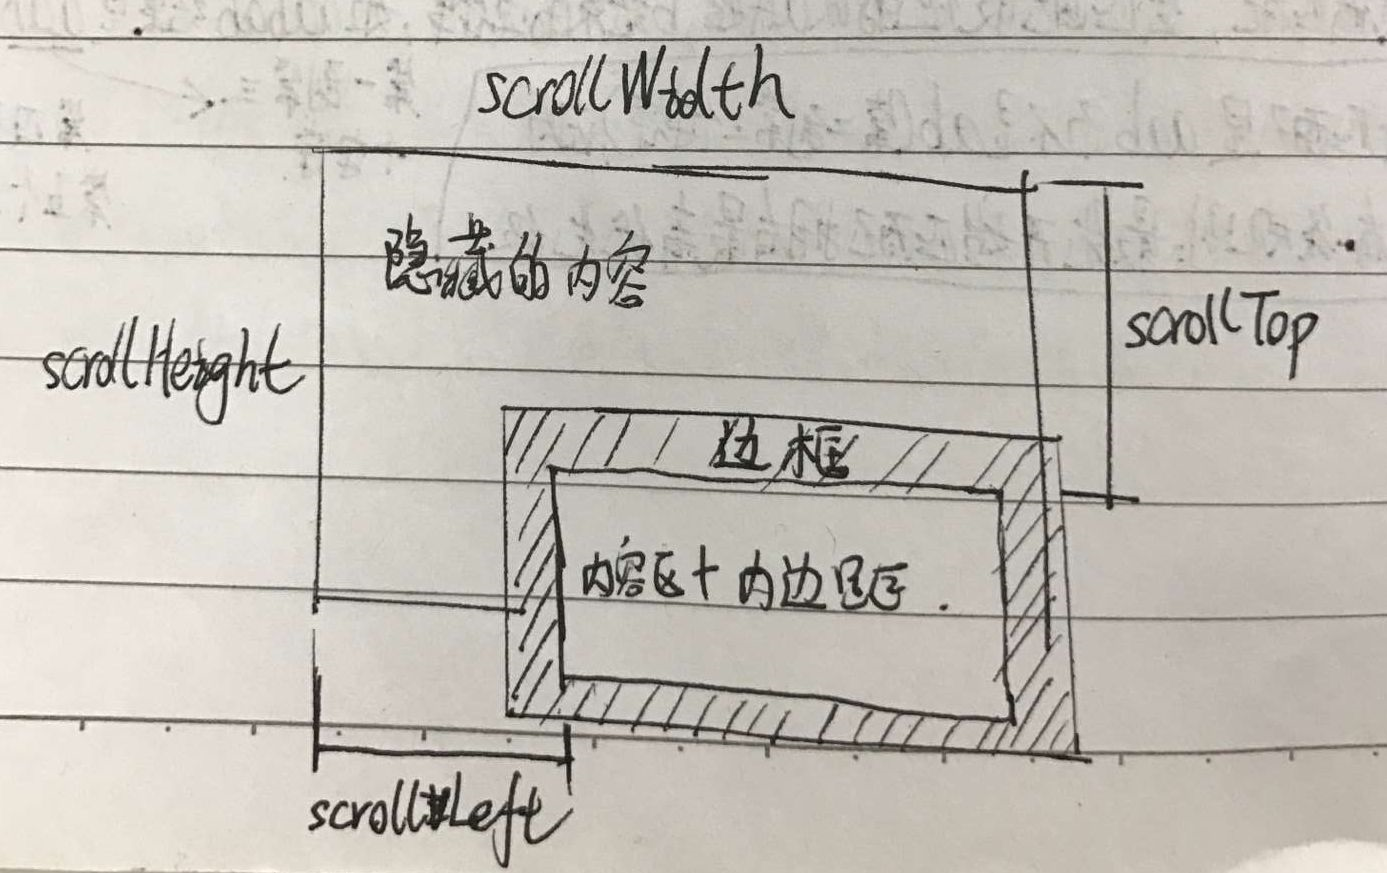 scrollWidth
隐藏的内容
scrollTop
scrollHeight
边框
内容区+内边距.
scrollLeft